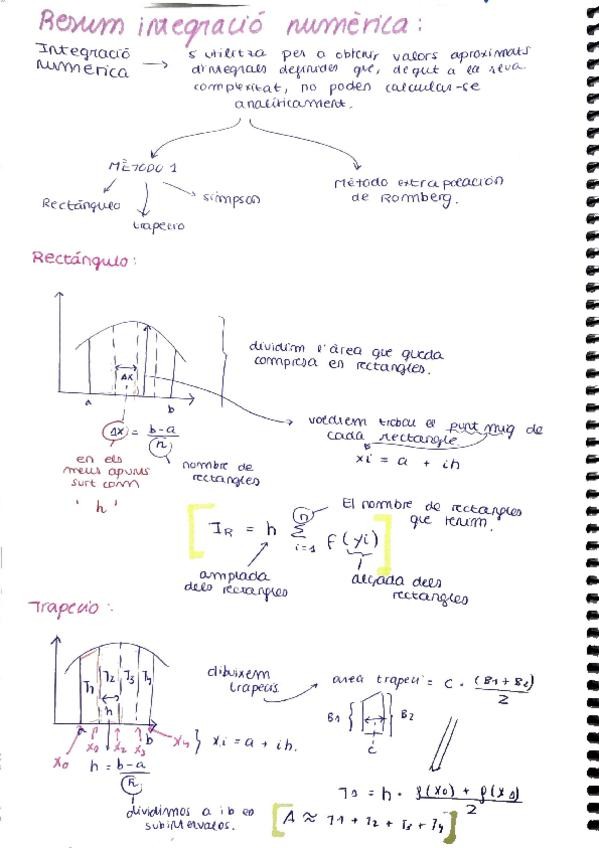 Resum integració numèrica:
Integració numèrica → s'utilitza per a obtenir valors aproximats
d'integrals definides que, degut a la seva
complexitat, no poden calcular-se
analíticament.
MÈTODO 1
Rectángulo
trapecio
simpson
Método extrapolación
de Romberg.
Rectángulo:
Δx
a
b
dividim l'àrea que queda
compresa en rectangles.
Δx = b-a / n
nombre de
rectangles
en els
meus apunts
surt com
'h'
voldrem trobar el punt mig de
cada rectangle.
xi = a + ih
El nombre de rectangles
que tenim.
IR = h Σ i=1 n f(yi)
amplada
dels rectangles
alçada dels
rectangles
Trapecio:
T1 T2 T3 T4
h
a
b
x0 x2 x3 x4
x0
} xi = a + ih.
h = b-a / n
dividimos a i b en
subintervalos.
dibuixem
trapecis.
area trapeci = C · (B1 + B2) / 2
B1
B2
c
= h · f(x0) + f(x1) / 2
[A ≈ T1 + T2 + T3 + T4]